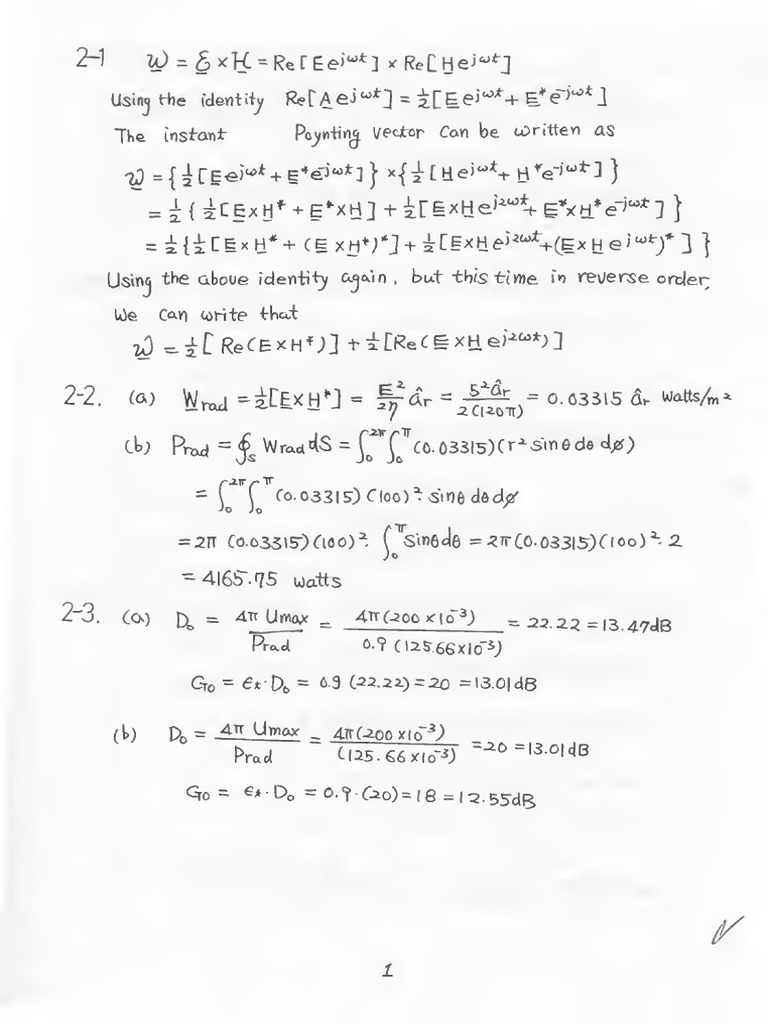 2-1 W = E × H = Re[Ee^jωt] × Re[He^jωt]
Using the identity Re[Ae^jωt] = ½[Ee^jωt + E*e^-jωt]
The instant Poynting vector can be written as
W = {½[Ee^jωt + E*e^-jωt]} × {½[He^jωt + H*e^-jωt]}
= ½{½[E×H* + E*×H] + ½[E×He^j2ωt + E*×H*e^-jωt]}
= ½{½[E×H* + (E×H*)*] + ½[E×He^j2ωt + (E×He^jωt)*]}
Using the above identity again, but this time in reverse order,
we can write that
W = ½[Re(E×H*)] + ½[Re(E×He^j2ωt)]
2-2. (a) Wrad = ½[E×H*] = E²/2η âr = 5²âr/2(120π) = 0.03315 âr Watts/m²
(b) Prad = ∮s Wrad dS = ∫₀^2π ∫₀^π (0.03315)(r² sinθ dθ dø)
= ∫₀^2π ∫₀^π (0.03315)(100)²· sinθ dθ dø
= 2π (0.03315)(100)²· ∫₀^π sinθdθ = 2π(0.03315)(100)²·2
= 4165.75 watts
2-3. (a) D₀ = 4π Umax/Prad = 4π(200×10⁻³)/0.9(125.66×10⁻³) = 22.22 = 13.47dB
G₀ = et·D₀ = 0.9 (22.22) = 20 = 13.01dB
(b) D₀ = 4π Umax/Prad = 4π(200×10⁻³)/(125.66×10⁻³) = 20 = 13.01dB
G₀ = et·D₀ = 0.9·(20) = 18 = 12.55dB
1